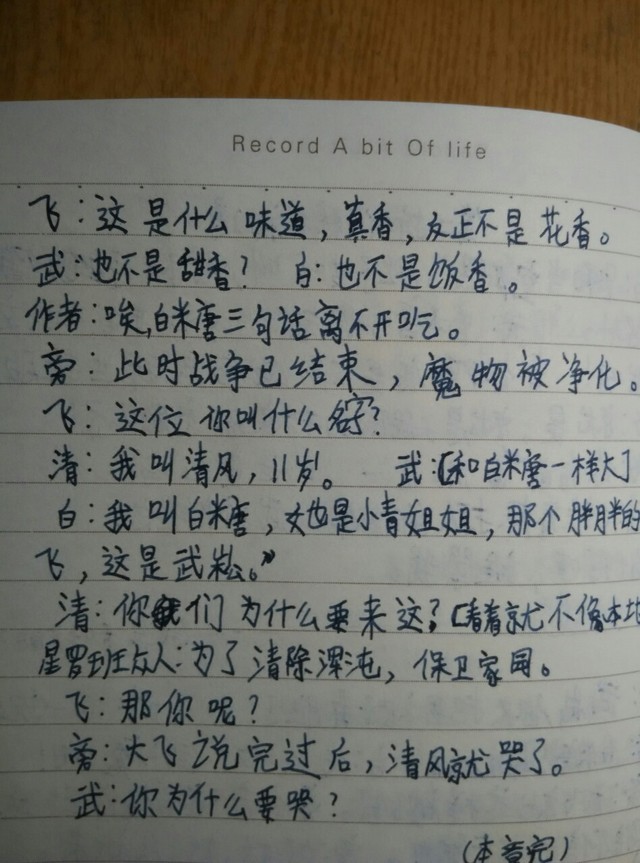 Record A bit Of life
飞：这是什么味道，真香，反正不是花香。
武：也不是甜香？ 白：也不是饭香。
作者：唉，白米唐三句话离不开吃。
旁：此时战争已结束，魔物被净化。
飞：这位你叫什么名字？
清：我叫清风，11岁。 武：[和白米唐一样大]
白：我叫白米唐，她是小青姐姐，那个胖胖的
飞，这是武崧。”
清：你们为什么要来这？[看着就不像本地
星罗班众人：为了清除浑沌，保卫家园。
飞：那你呢？
旁：大飞说完过后，清风就哭了。
武：你为什么要哭？
(本章完)